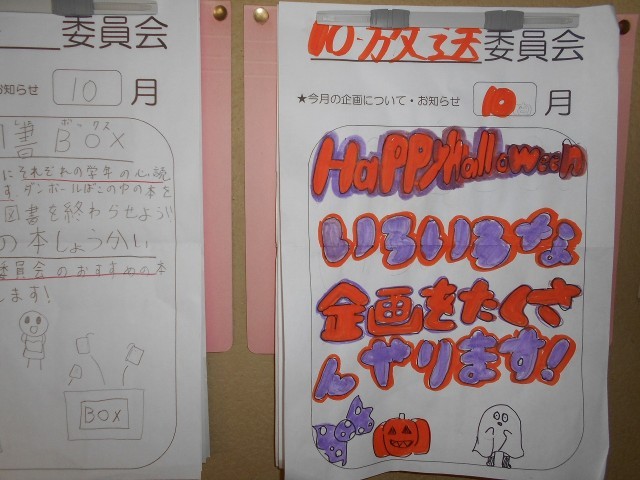 委員会
お知らせ 10 月
書 BOX
ボックス
にそれぞれの学年の必読
す。ダンボールばこの中の本を
図書を終わらせよう!!
の本しょうかい
委員会のおすすめの本
します!
BOX
10放送委員会
★今月の企画について・お知らせ 10 月
HaPPy Halloween
いろいろな
企画をたくさ
んやります!